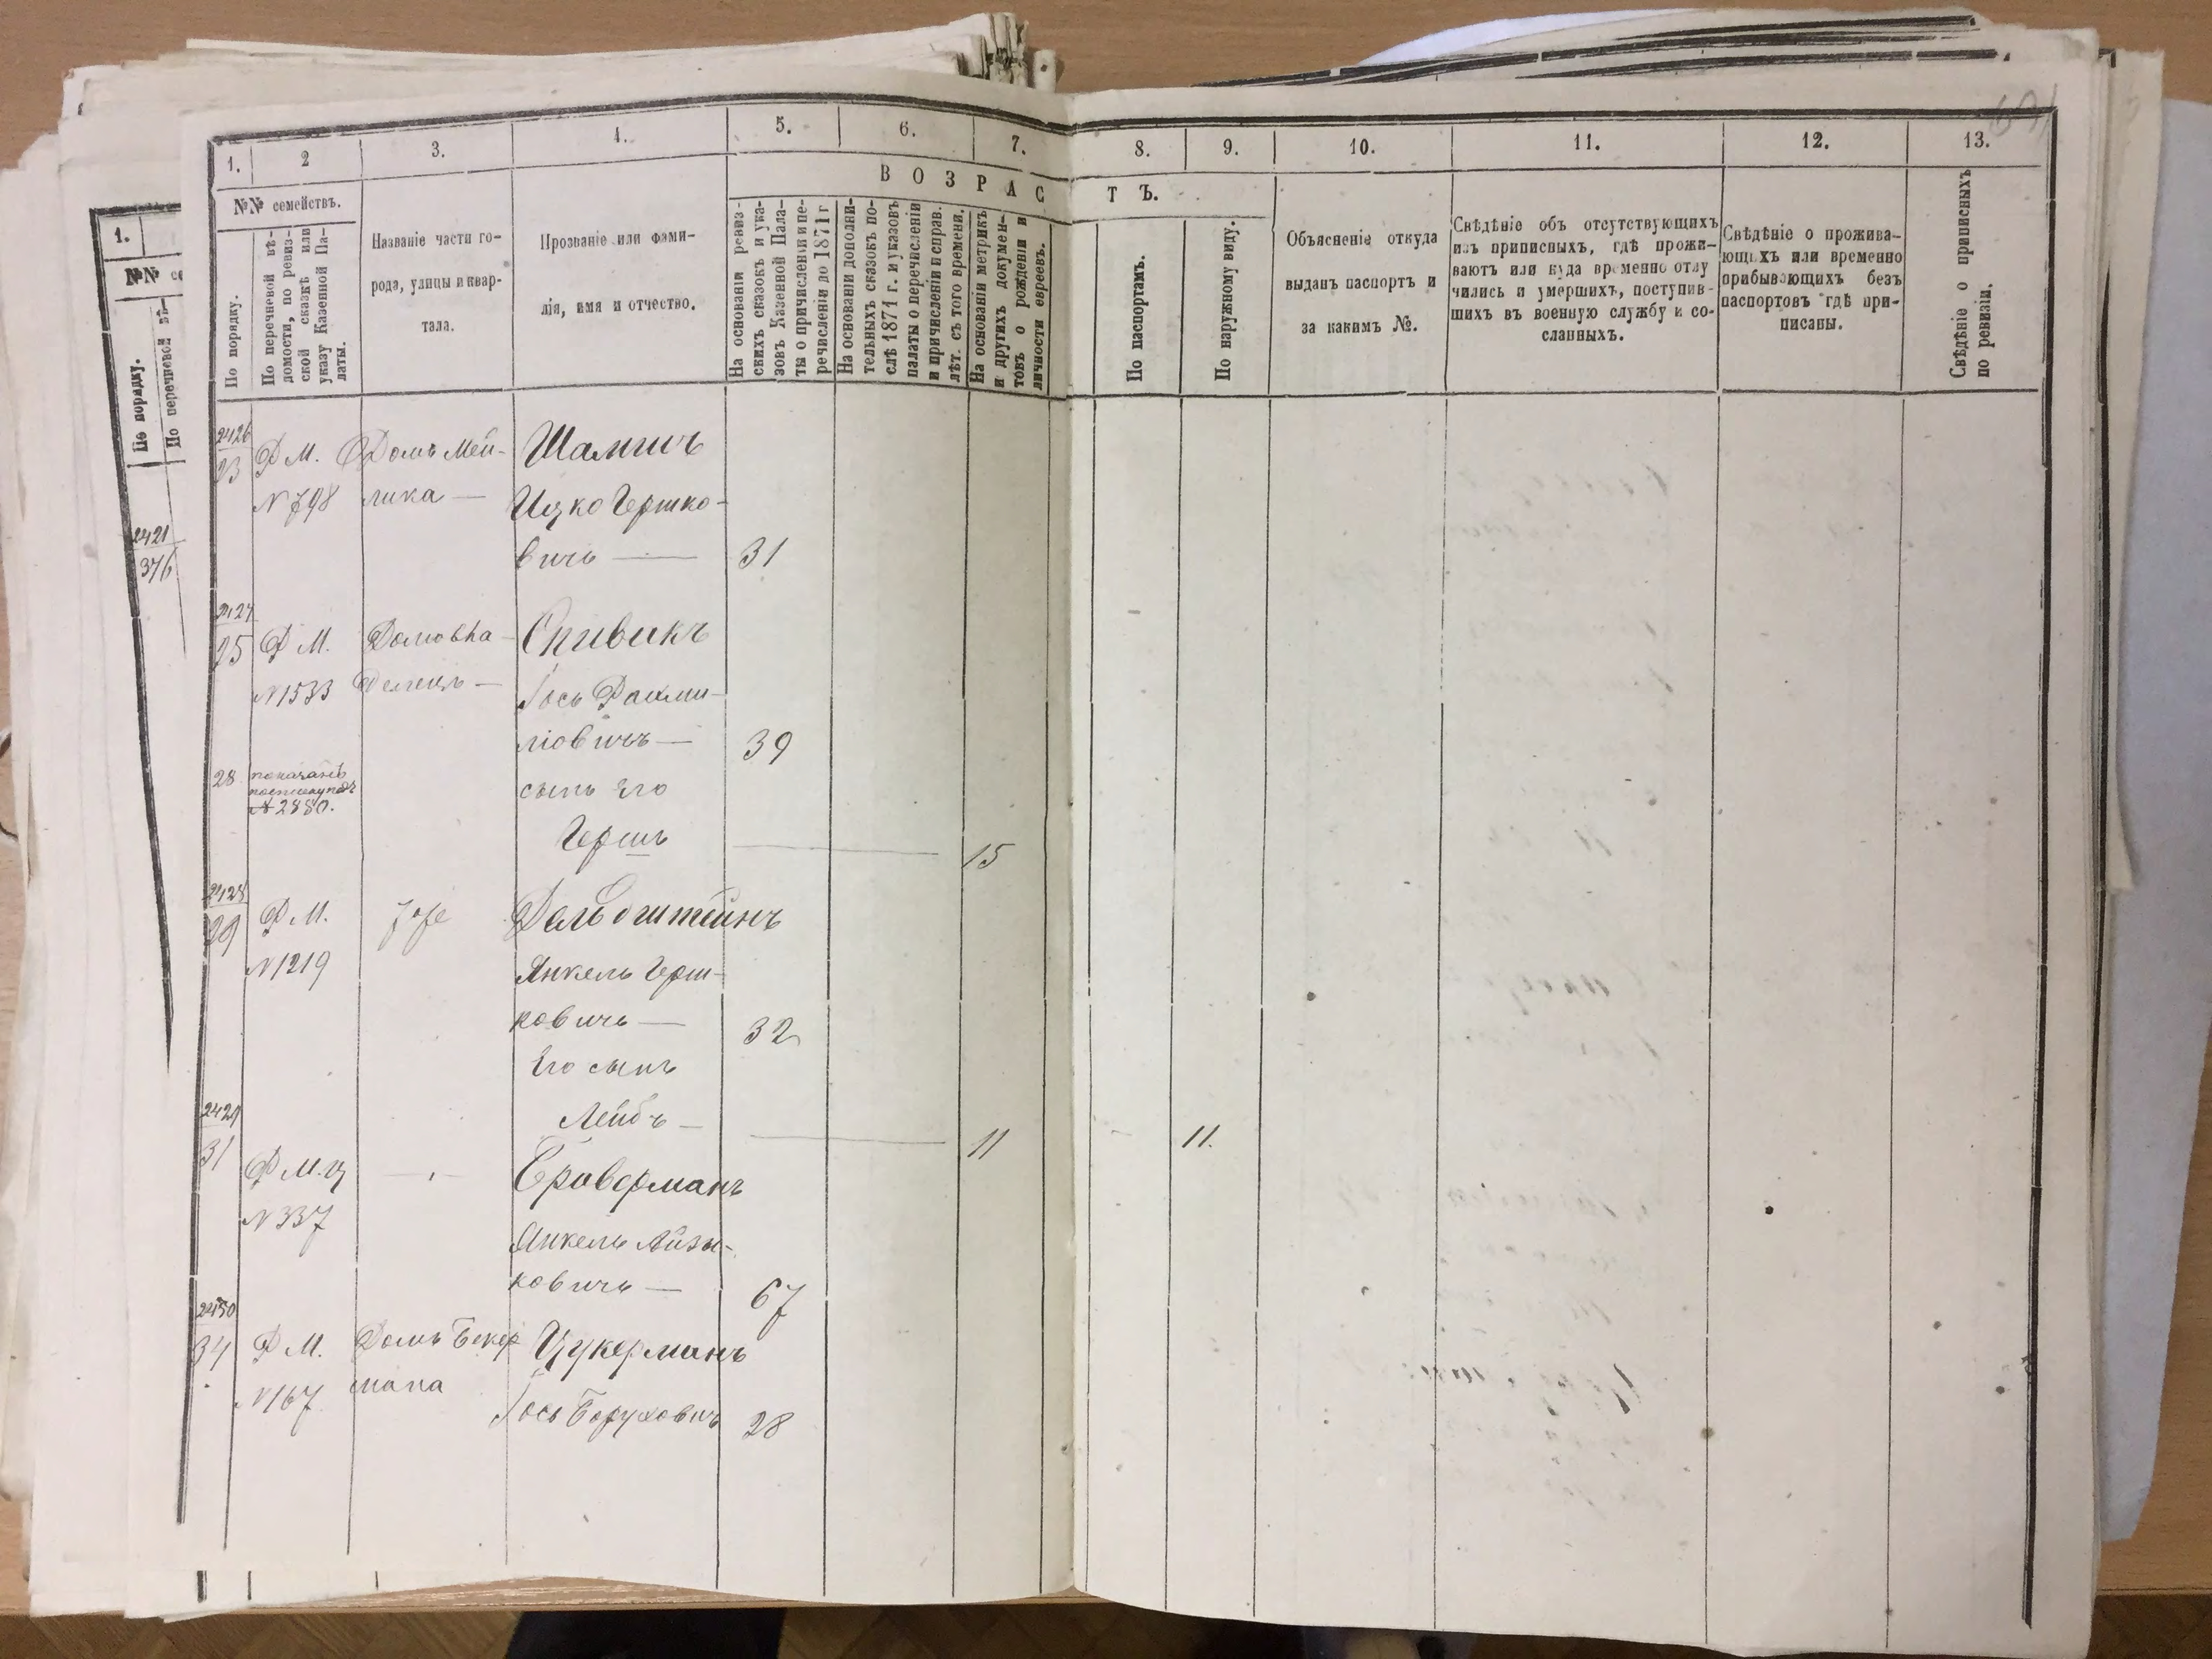 1.
№№ се
По порядку.
По перечневой вѣ-
2421
376
1.
2
3.
4.
5.
6.
7.
8.
9.
10.
11.
12.
13.
№№ семействъ.
По порядку.
По перечневой вѣ-
домости, по ревиз-
ской сказкѣ или
указу Казенной Па-
латы.
Названіе части го-
рода, улицы и квар-
тала.
Прозваніе или фами-
лія, имя и отчество.
ВОЗРАС
ТЪ.
На основаніи ревиз-
скихъ сказокъ и ука-
зовъ Казенной Пала-
ты о причисленіи и пе-
речисленіи до 1871 г
На основаніи дополни-
тельныхъ сказокъ по-
слѣ 1871 г. и указовъ
палаты о перечисленіи
и причисленіи и справ.
лѣт. съ того времени.
На основаніи метрикъ
и другихъ докумен-
товъ о рожденіи и
личности евреевъ.
По паспортамъ.
По наружному виду.
Объясненіе откуда
выданъ паспортъ и
за какимъ №.
Свѣдѣніе объ отсутствующихъ
изъ приписныхъ, гдѣ прожи-
ваютъ или куда временно отлу
чились и умершихъ, поступив-
шихъ въ военную службу и со-
сланныхъ.
Свѣдѣніе о прожива-
ющихъ или временно
прибывающихъ безъ
паспортовъ гдѣ при-
писаны.
Свѣдѣніе о приписныхъ
по ревизіи.
2426
23 Р М. Домъ Мей- Шамисъ
N 798 лика — Ицко Гершко-
вичь — 31
2427
25 Р М. Домовла- Спивакъ
N 1533 делецъ — Іось Рахми-
ліовичъ — 39
28 показанъ
N 2880. сынъ его
Гершъ 15
2428
29 Р М. Гольдштейнъ
N 1219 Янкель Герш-
ковичь — 32
Его сынъ
Лейбъ — 11 11.
2429
31 Р М. Броверманъ
N 337
Янкель Айзы-
ковичь — 67
2430
34 Р М. Домъ Бекер Цукерманъ
N 167 мана
Іось Боруховичъ 28